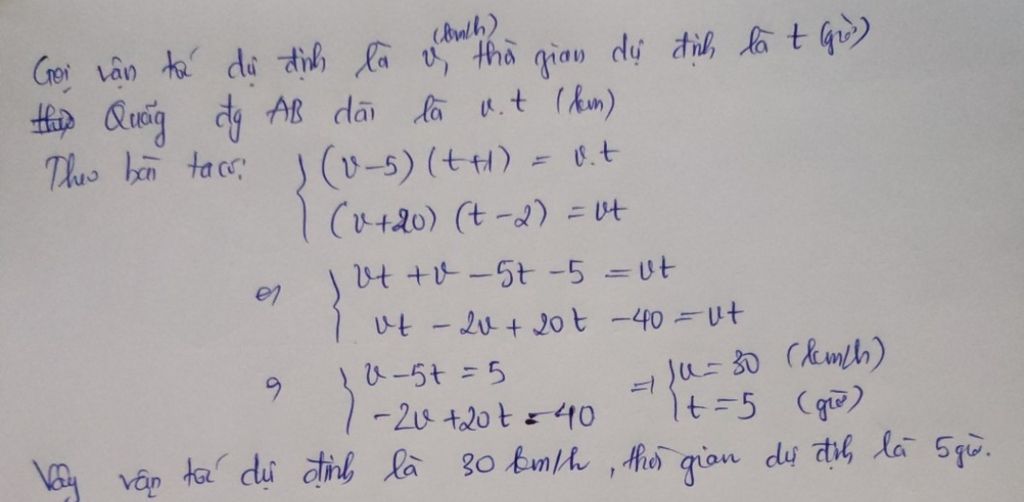 Gọi vận tốc dự định là v (km/h), thời gian dự định là t (giờ)
Quãng đg AB dài là v.t (km)
Theo bài ta có: { (v-5)(t+1) = v.t
(v+20)(t-2) = vt
{ vt + v - 5t - 5 = vt
vt - 2v + 20t - 40 = vt
{ v - 5t = 5 => { v = 30 (km/h)
-2v + 20t = 40 t = 5 (giờ)
Vậy vận tốc dự định là 30 km/h, thời gian dự định là 5 giờ.